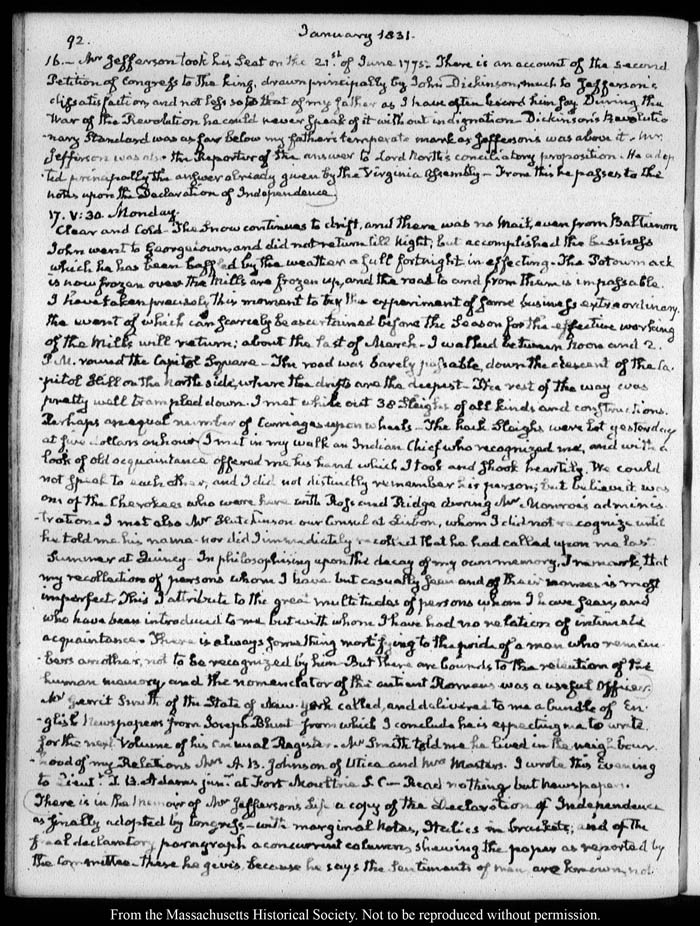 92.
January 1831.
16.— Mr Jefferson took his Seat on the 21.st of June 1775.— There is an account of the second
Petition of Congress to the King, drawn principally by John Dickinson, much to Jefferson's
dissatisfaction, and not less so to that of my father as I have often heard him say. During the
War of the Revolution he could never speak of it without indignation— Dickinson's Revolutio-
nary Standard was as far below my father's temperate mark as Jefferson's was above it. Mr.
Jefferson was also the Reporter of the answer to Lord North's conciliatory proposition. He adop-
ted principally the answer already given by the Virginia Assembly— From this he passes to the
notes upon the Declaration of Independence
17. V:30. Monday.
Clear and Cold— The Snow continues to drift, and there was no Mail, even from Baltimore
John went to Georgetown, and did not return till Night; but accomplished the business
which he has been baffled by the weather a full fortnight in effecting. The Potowmack
is now frozen over the Mills are frozen up, and the road to and from them is impassable.
I have taken precisely this moment to try the experiment of some business extraordinary.
the event of which can scarcely be ascertained before the Season for the effective working
of the Mills will return; about the last of March— I walked between Noon and 2.
P.M. round the Capitol Square— The road was barely passable, down the descent of the Ca-
pitol Hill on the North side, where the drifts are the deepest— The rest of the way was
pretty well trampled down. I met while out 38 Sleighs of all kinds and constructions.
Perhaps an equal number of Carriages upon wheels— The hack Sleighs were let yesterday
at five dollars an hour. I met in my walk an Indian Chief who recognized me, and with a
look of old acquaintance offered me his hand which I took and shook heartily. We could
not speak to each other, and I did not distinctly remember his person; but believe it was
one of the Cherokees who were here with Ross and Ridge during Mr. Monroe's adminis-
tration. I met also Mr Hutchinson our Consul at Lisbon, whom I did not recognize until
he told me his name— nor did I immediately recollect that he had called upon me last
Summer at Quincy— In philosophising upon the decay of my own memory, I remark, that
my recollection of persons whom I have but casually seen and of their names is most
imperfect. This I attribute to the great multitudes of persons whom I have seen, and
who have been introduced to me but with whom I have had no relation of intimate
acquaintance. There is always something mortifying to the pride of a man who remem-
bers another, not to be recognized by him— But there are bounds to the retention of the
human memory, and the nomenclator of the antient Romans was a useful Officer.
Mr Gerrit Smith of the State of New-York called, and delivered to me a bundle of En-
glish Newspapers from Joseph Blunt— from which I conclude he is expecting me to write
for the next Volume of his Annual Register. Mr Smith told me he lived in the neighbour-
hood of my Relations Mrs A. B. Johnson of Utica and Mrs Masters. I wrote this Evening
to Lieut. T. B. Adams junr. at Fort Moultrie S. C.— Read nothing but newspapers.
There is in the Memoir of Mr Jefferson's Life a copy of the Declaration of Independence
as finally adopted by Congress— with marginal Notes, Italics in brackets; and of the
final declaratory paragraph a concurrent column, shewing the paper as reported by
the Committee— these he gives because he says the Sentiments of men are known, not
From the Massachusetts Historical Society. Not to be reproduced without permission.